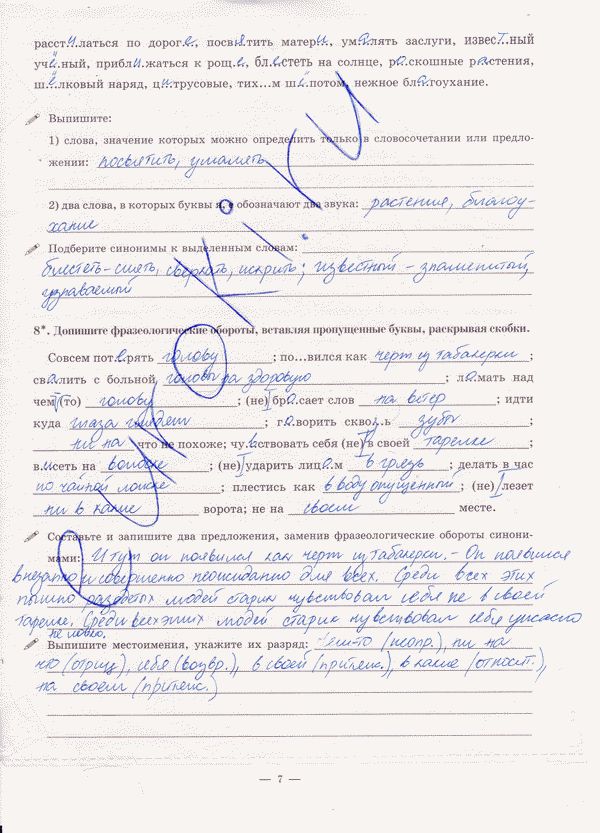 расстилаться по дороге, посвятить матери, умалять заслуги, извесТный
учёный, приближаться к роще, блестеть на солнце, роскошные растения,
шёлковый наряд, цитрусовые, тих...м шёпотом, нежное благоухание.
Выпишите:
1) слова, значение которых можно определить только в словосочетании или предло-
жении: посвятить, умалять
2) два слова, в которых буквы я, е обозначают два звука: растения, благоу-
хание
Подберите синонимы к выделенным словам:
блестеть - сиять, сверкать, искрить; известный - знаменитый,
узнаваемый
8*. Допишите фразеологические обороты, вставляя пропущенные буквы, раскрывая скобки.
Совсем потерять голову ; по...вился как черт из табакерки ;
свалить с больной головы на здоровую ; ломать над
чем(то) голову ; (не) бросает слов на ветер ; идти
куда глаза глядят ; говорить сквозь зубы ;
ни на что не похоже; чувствовать себя (не) в своей тарелке ;
висеть на волоске ; (не) ударить лицом в грязь ; делать в час
по чайной ложке ; плестись как в воду опущенный ; (не) лезет
ни в какие ворота; не на своем месте.
Составьте и запишите два предложения, заменив фразеологические обороты синони-
мами: И тут он появился как черт из табакерки. - Он появился
внезапно и совершенно неожиданно для всех. Среди всех этих
пышно разодетых людей старик чувствовал себя не в своей
тарелке. Среди всех этих людей старик чувствовал себя ужасно
неловко.
Выпишите местоимения, укажите их разряд: чем-то (неопр.), ни на
что (отриц), себя (возвр.), в своей (притяж.), в какие (относит.),
на своем (притяж.)
— 7 —